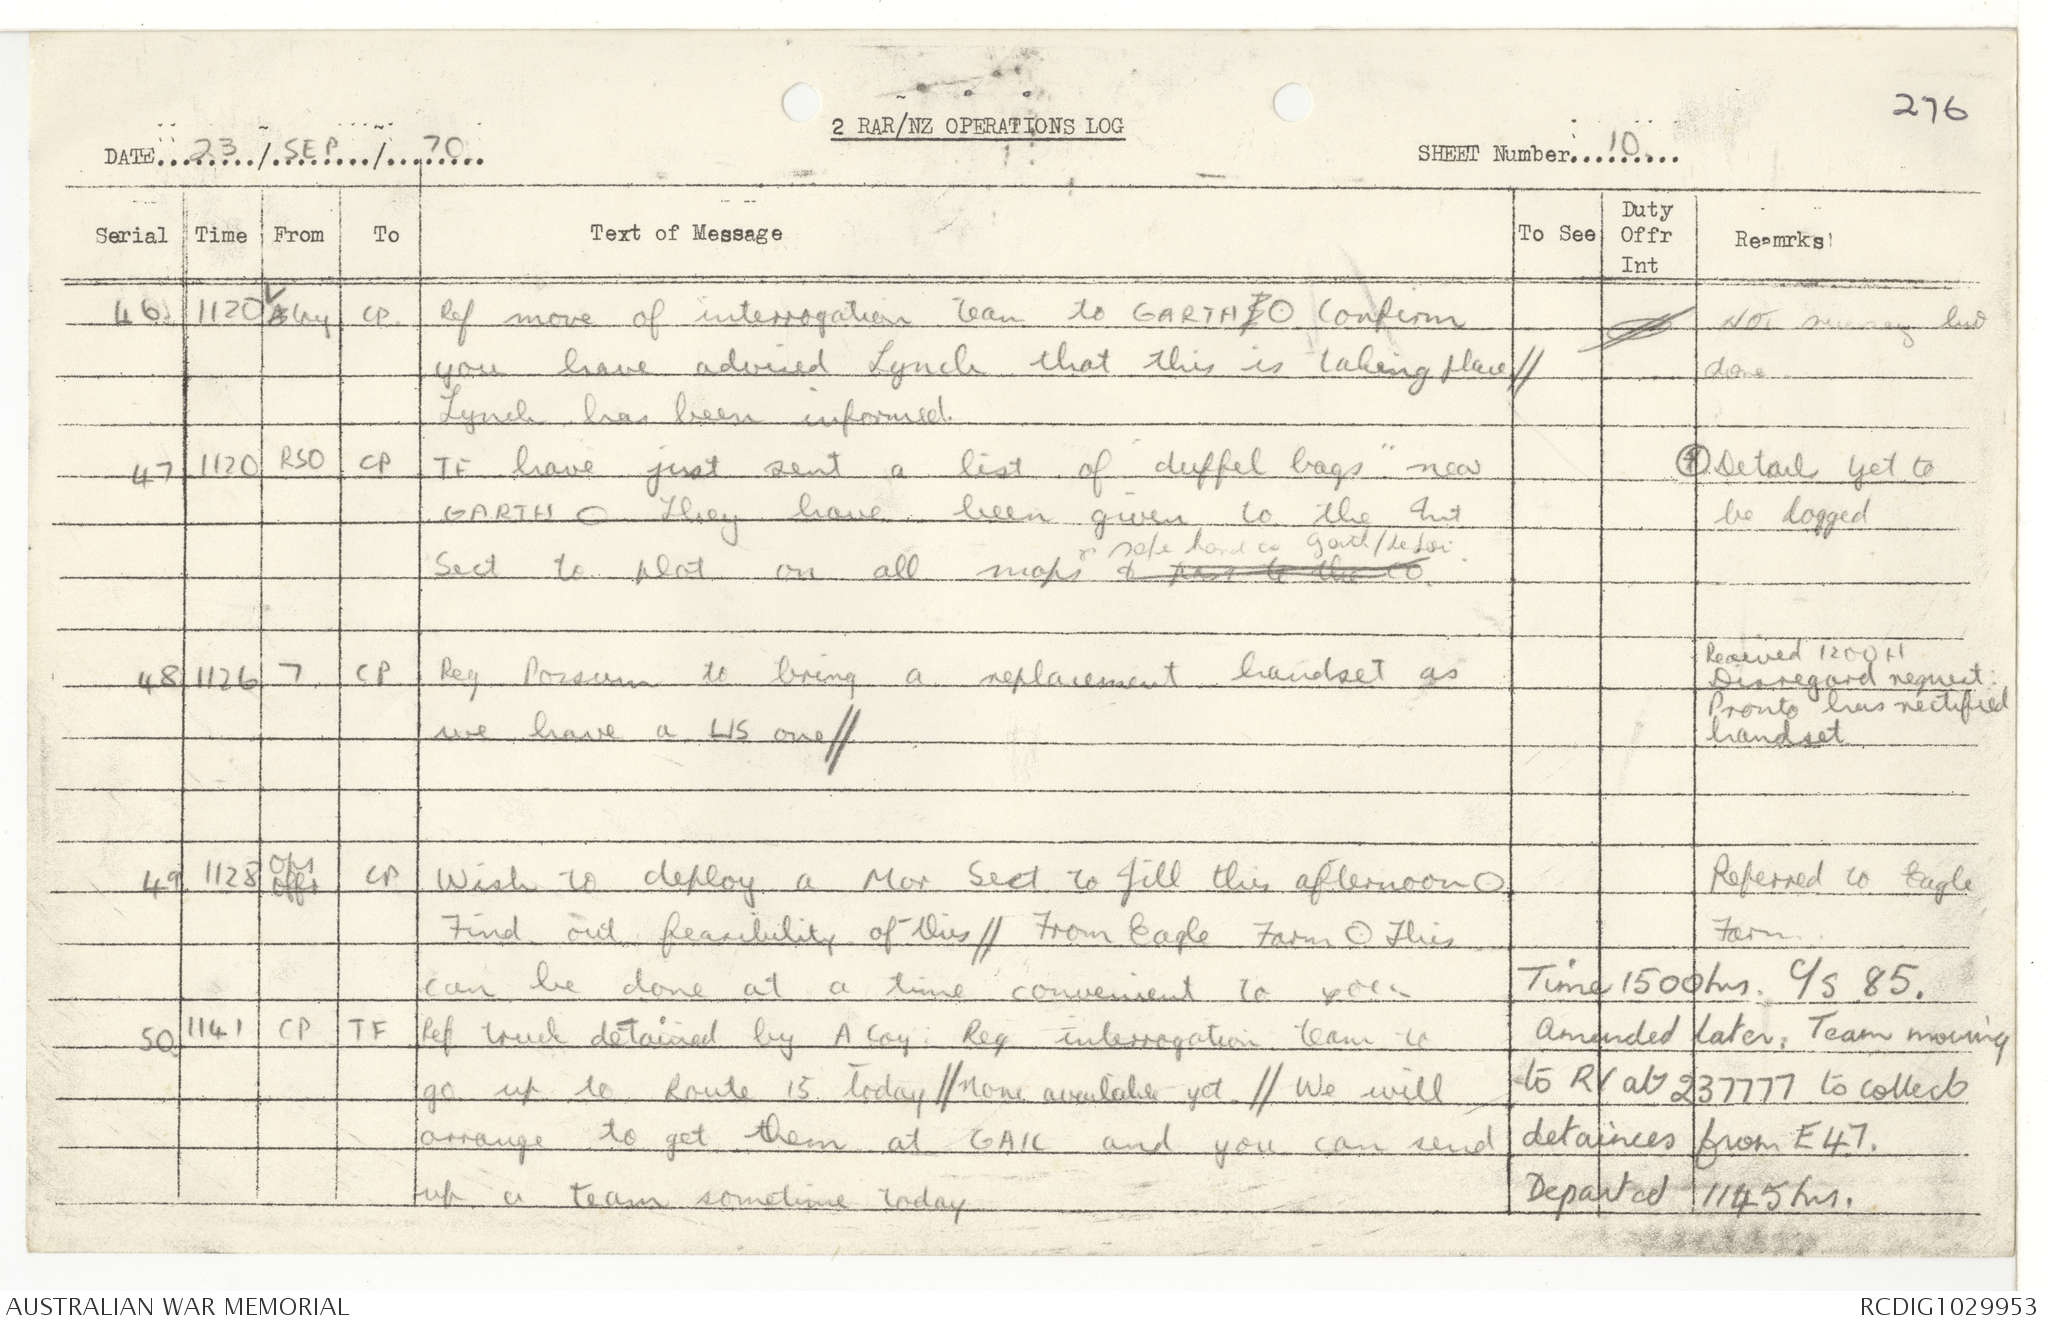 276
2 RAR/NZ OPERATIONS LOG
DATE...23.../...SEP.../...70...
SHEET Number...10...
Serial Time From To Text of Message To See Duty Offr Int Remrks
46. 1120 Coy CP. Ref move of interrogation team to GARTH O Confirm NOT but
you have advised Lynch that this is taking place// done
Lynch has been informed.
47 1120 RSO CP TF have just sent a list of duffel bags" near Details yet to
GARTH O They have been given to the Int be logged
safe hand
Sect to plot on all maps & pass to the CO.
48 1126 7 CP Req Possum to bring a replacement handset as
we have a U/S one//
Received 1200H
Disregard request.
Pronto has rectified
handset
49. 1128 Ops Offr CP Wish to deploy a Mor Sect to Jill this afternoon O Referred to Eagle
Find out feasibility of this// From Eagle Farm O This Farm.
can be done at a time convenient to you Time 1500hrs. C/S 85.
50. 1141 CP TF Ref truck detained by A Coy. Req interrogation team to Amended later. Team moving
go up to Route 15 today// None available yet.// We will to RV at 237777 to collect
arrange to get them at GAIL and you can send detainees from E47.
up a team sometime today Departed 1145hrs.
AUSTRALIAN WAR MEMORIAL
RCDIG1029953